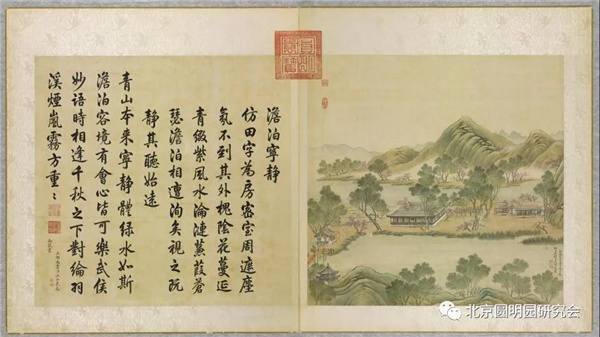 澹泊寧靜
仿田字為房密室周遮塵
氛不到其外槐陰花蔓延
青綴紫風水淪漣蒹葭蒼
瑟澹泊相遭洵矣視之既
靜其聽始遠
青山本来寧靜體綠水如斯
澹泊容境有會心皆可樂武侯
妙語時相逢千秋之下對綸羽
溪煙嵐霧方重〻
北京圓明园研究会